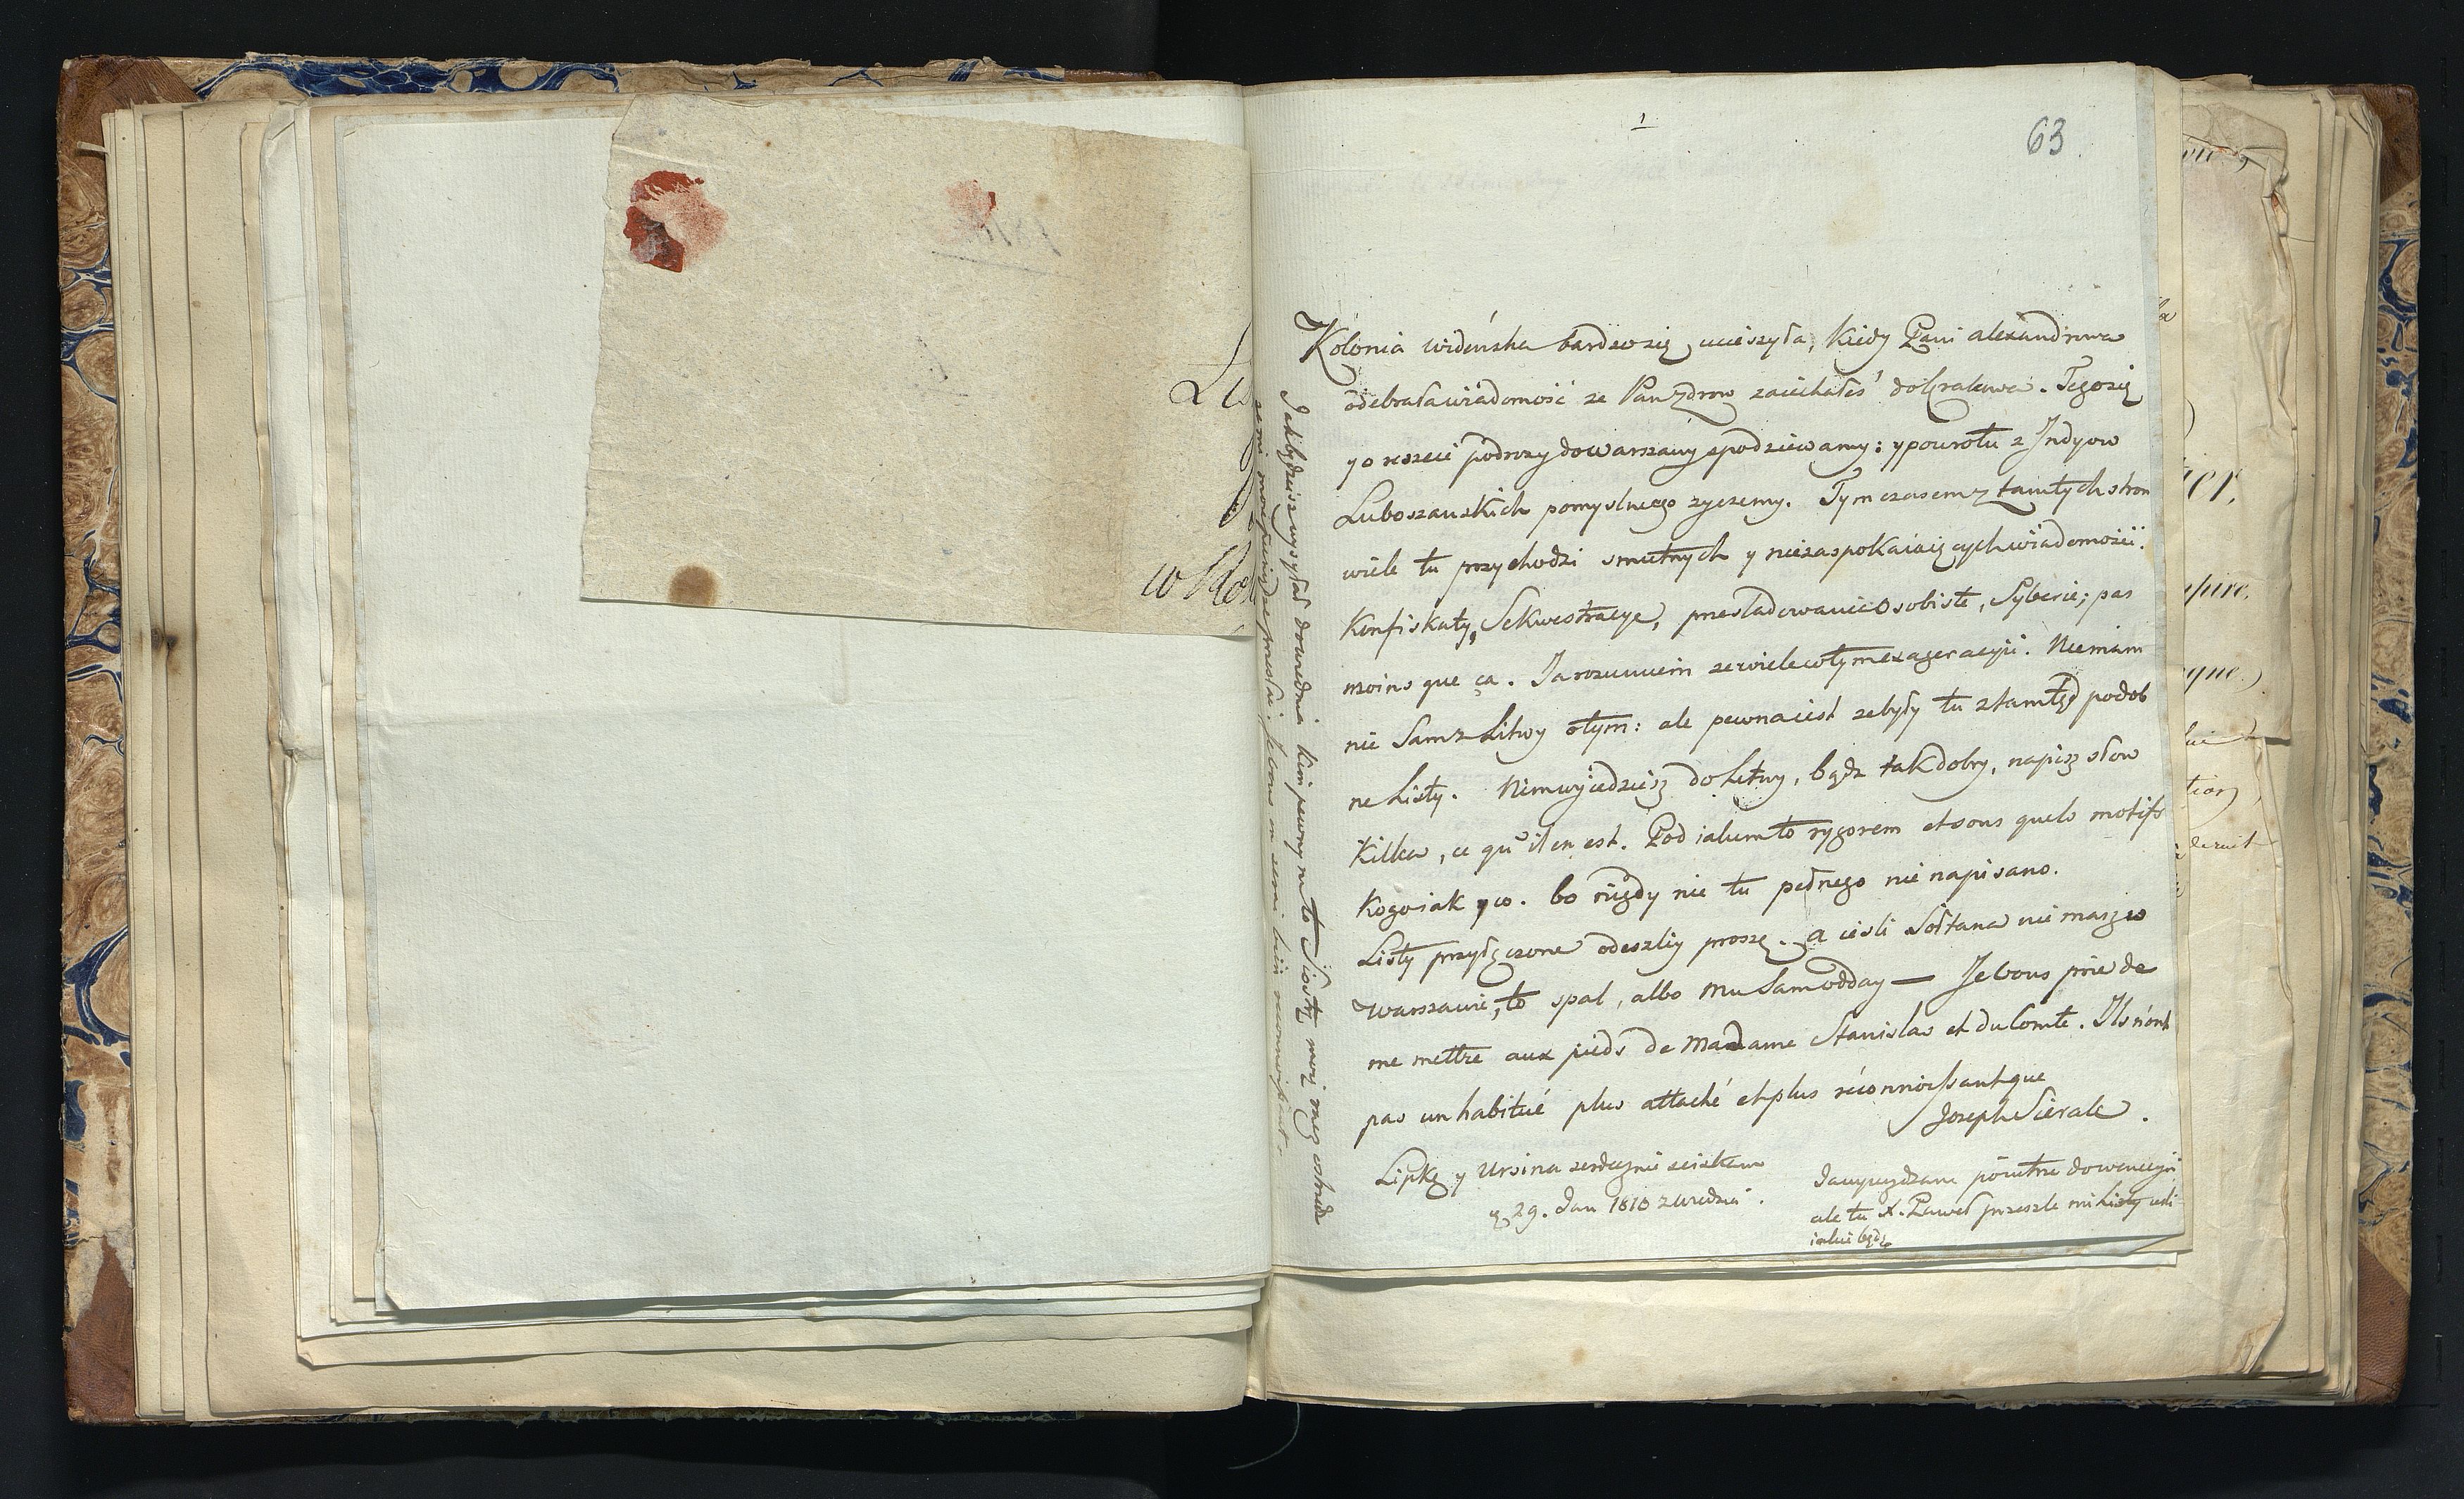 Li
w Ro
1
63
Kolonia widenska bardzo się ucieszyła, kiedy Pani alexandrowa
odebrała wiadomość ze Pan zdrow zaiechałeś do Krakowa. Tego się
y o reszcie podrozy do warszawy spodziewamy: y powrotu z Indyow
Luboszanskich pomyslnego zyczemy. Tym czasem z tamtych stron
wiele tu przychodzi smutnych y niezaspokaiaiących wiadomości.
Konfiskaty, Sekwestracye, przesladowanie osobiste, Syberie; pas
moins que ça. Ia rozumiem ze wiele w tym exageracyi. Nie mam
nic Sam z Litwy o tym: ale pewna iest ze były tu ztamtąd podob
ne Listy. Nim wyiedziesz do Litwy, bądz tak dobry, napisz słow
kilka, ce qu'il en est. Pod iakim to rygorem et sous quels motifs
Kogo iak y co. bo nigdy nic tu pełnego nie napisano.
Listy przyłączone odeszliy proszę. a ieśli Sołtana nie masz w
Warszawie, to spal, albo mu Sam odday — Je vous prie de
me mettre aux pieds de Madame Stanislas et du Comte. Ils n'ont
pas un habitué plus attaché et plus réconnoissant que
Joseph Sierak.
Lipkę y Ursina serdecznie sciskam
d. 29. Jan 1810 z Wiednia.
Ia wyiezdzam poiutrze do wenecyi
ale tu X. Paweł przeszle mi listy ieśli
iakie będą
Iak będziesz wysyłał do wiednia kim pewnym to Siostrę moię niez
ze mi moie pieniądze przesłać. je vous en serai bien reconnoissant.